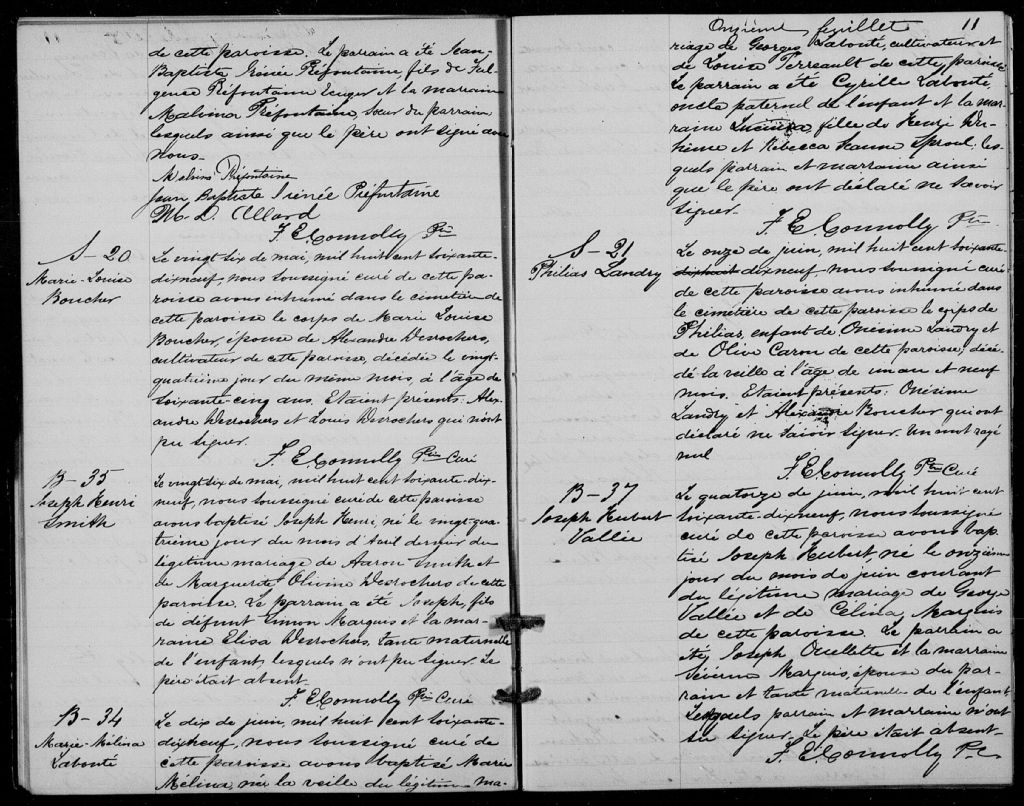 de cette paroisse. Le parrain a été Jean-
Baptiste Irénée Préfontaine, fils de Ful-
gence Préfontaine Ecuyer et la marraine
Malvina Préfontaine, sœur du parrain
lesquels ainsi que le père ont signé avec
nous.
Melvina Préfontaine
Jean Baptiste Irénée Préfontaine
M. D. Allard
F. E. Connolly Ptre
S-20
Marie-Louise
Boucher
Le vingt six de mai, mil huit cent soixante-
dixneuf, nous soussigné curé de cette pa-
roisse avons inhumé dans le cimetière de
cette paroisse le corps de Marie Louise
Boucher, épouse de Alexandre Desrochers,
cultivateur de cette paroisse, décédée le vingt-
quatrième jour du même mois, à l'âge de
soixante-cinq ans. Etaient présents: Alex-
andre Desrochers et Louis Desrochers qui n'ont
pu signer.
F. E. Connolly Ptre Curé
B-35
Joseph Henri
Smith
Le vingt six de mai, mil huit cent soixante-dix-
neuf, nous soussigné curé de cette paroisse
avons baptisé Joseph Henri, né le vingt-qua-
trième jour du mois d'Avril dernier du
légitime mariage de Aaron Smith et
de Marguerite Olivine Desrochers de cette
paroisse. Le parrain a été Joseph, fils
de défunt Simon Marquis et la mar-
raine Elisa Desrochers, tante maternelle
de l'enfant, lesquels n'ont pu signer. Le
père était absent.
F. E. Connolly Ptre Curé
B-34
Marie-Mélina
Labonté
Le dix de juin, mil huit cent soixante-
dixneuf, nous soussigné curé de
cette paroisse avons baptisé Marie
Mélina, née la veille du légitime ma-
Onzième feuillet
11
riage de Georges Labonté, cultivateur et
de Louise Perreault de cette paroisse
Le parrain a été Cyrille Labonté,
oncle paternel de l'enfant et la mar-
raine fille de Henri Du-
hème et Rébecca Hanne Sproul; les-
quels parrain et marraine ainsi
que le père ont déclaré ne savoir
signer.
F. E. Connolly Ptre
S-21
Philias Landry
Le onze de juin, mil huit cent soixante-
dixhuit dixneuf, nous soussigné curé
de cette paroisse avons inhumé dans
le cimetière de cette paroisse le corps de
Philias, enfant de Onésime Landry et
de Olive Caron de cette paroisse; décé-
dé la veille à l'âge de un an et neuf
mois. Etaient présents: Onésime
Landry et Alexandre Boucher qui ont
déclaré ne savoir signer. Un mot rayé
nul
F. E. Connolly Ptre Curé
B-37
Joseph Hubert
Vallée
Le quatorze de juin, mil huit cent
soixante-dixneuf, nous soussigné
curé de cette paroisse avons bap-
tisé Joseph Hubert, né le onzième
jour du mois de juin courant
du légitime mariage de George
Vallée et de Célina Marquis
de cette paroisse. Le parrain a
été Joseph Ouellette et la marraine
Séverine Marquis, épouse du par-
rain et tante maternelle de l'enfant.
Lesquels parrain et marraine n'ont
su signer. Le père était absent.
F. E. Connolly Ptre